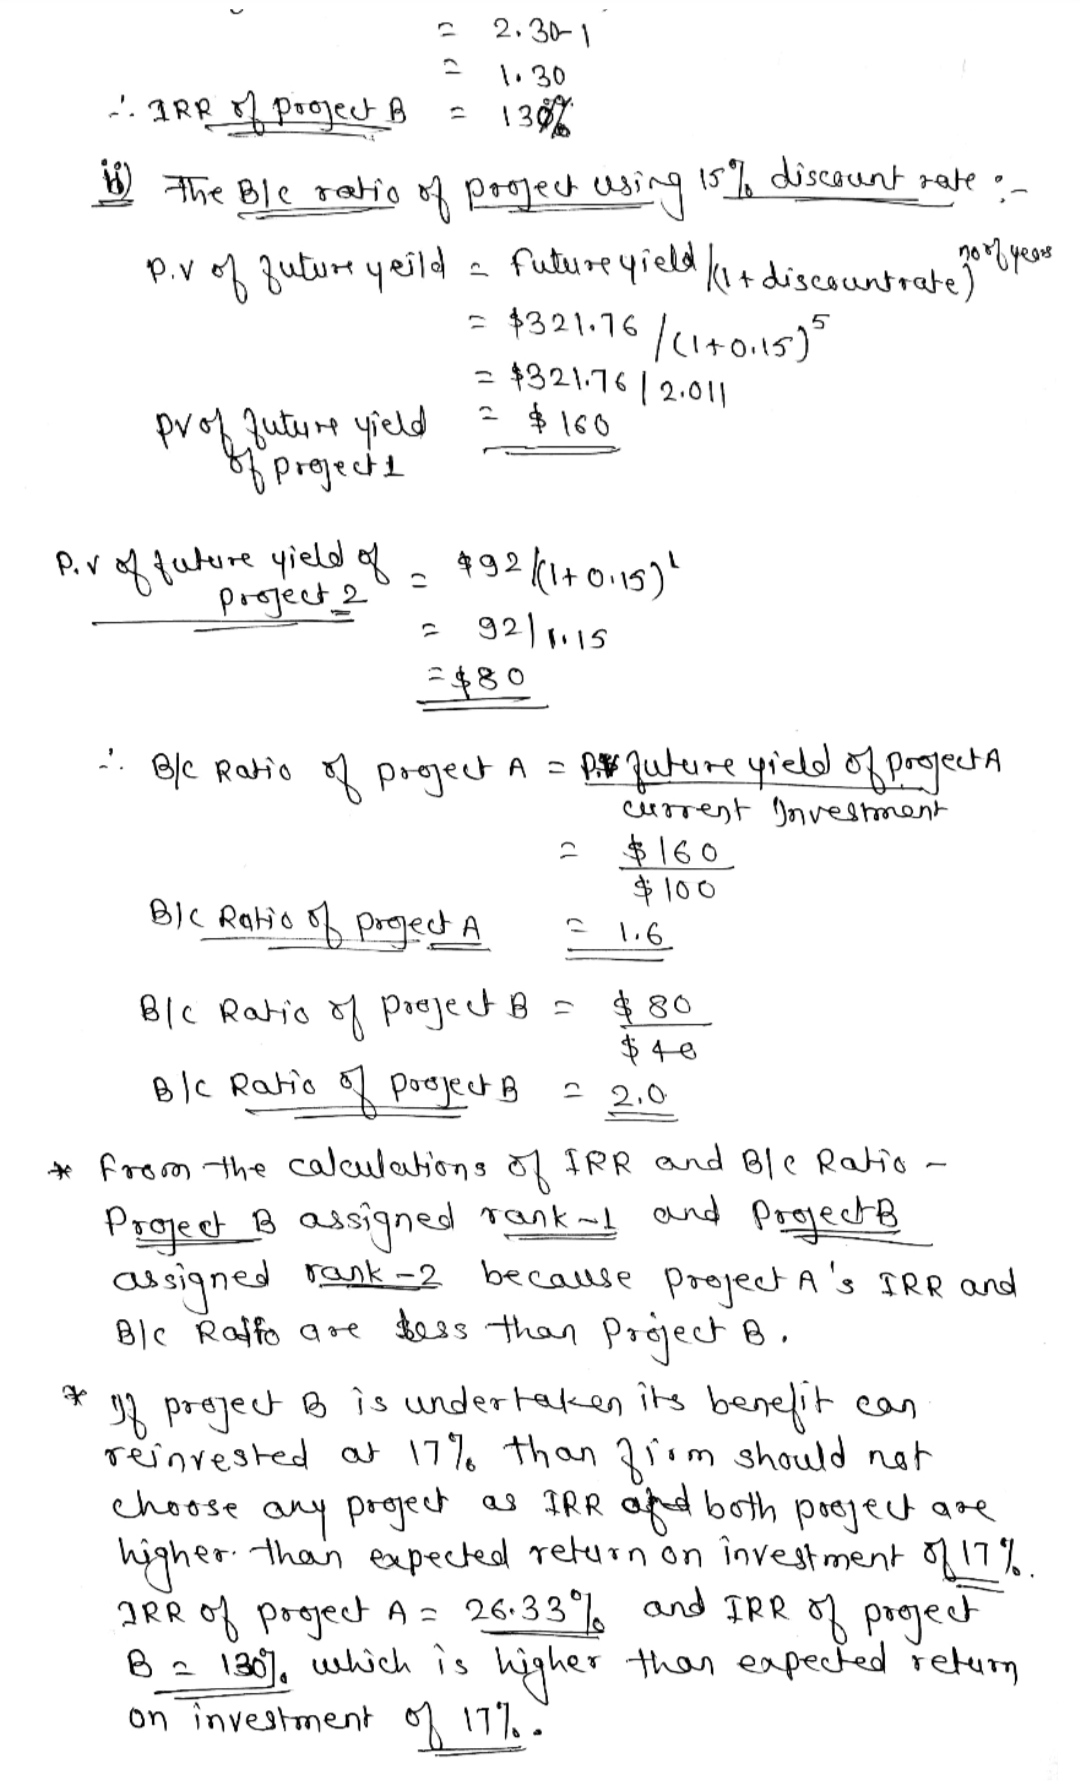 = 2.30-1
= 1.30
∴ IRR of project B = 130%
ii) The B/c ratio of project using 15% discount rate :-
P.V of future yeild = future yield /(1+discount rate)^no of years
= $321.76 /(1+0.15)^5
= $321.76 / 2.011
PV of future yield = $160
of project 1
P.V of future yield of = $92/(1+0.15)^1
project 2
= 92/1.15
= $80
∴ B/c Ratio of project A = P.V future yield of project A
current Investment
= $160
$100
B/c Ratio of project A = 1.6
B/c Ratio of project B = $80
$40
B/c Ratio of project B = 2.0
* from the calculations of IRR and B/c Ratio -
Project B assigned rank-1 and Project B
assigned rank-2 because project A's IRR and
B/c Ratio are less than project B.
* If project B is undertaken its benefit can
reinvested at 17% than firm should not
choose any project as IRR of both project are
higher than expected return on investment of 17%.
IRR of project A = 26.33% and IRR of project
B = 130% which is higher than expected return
on investment of 17%.